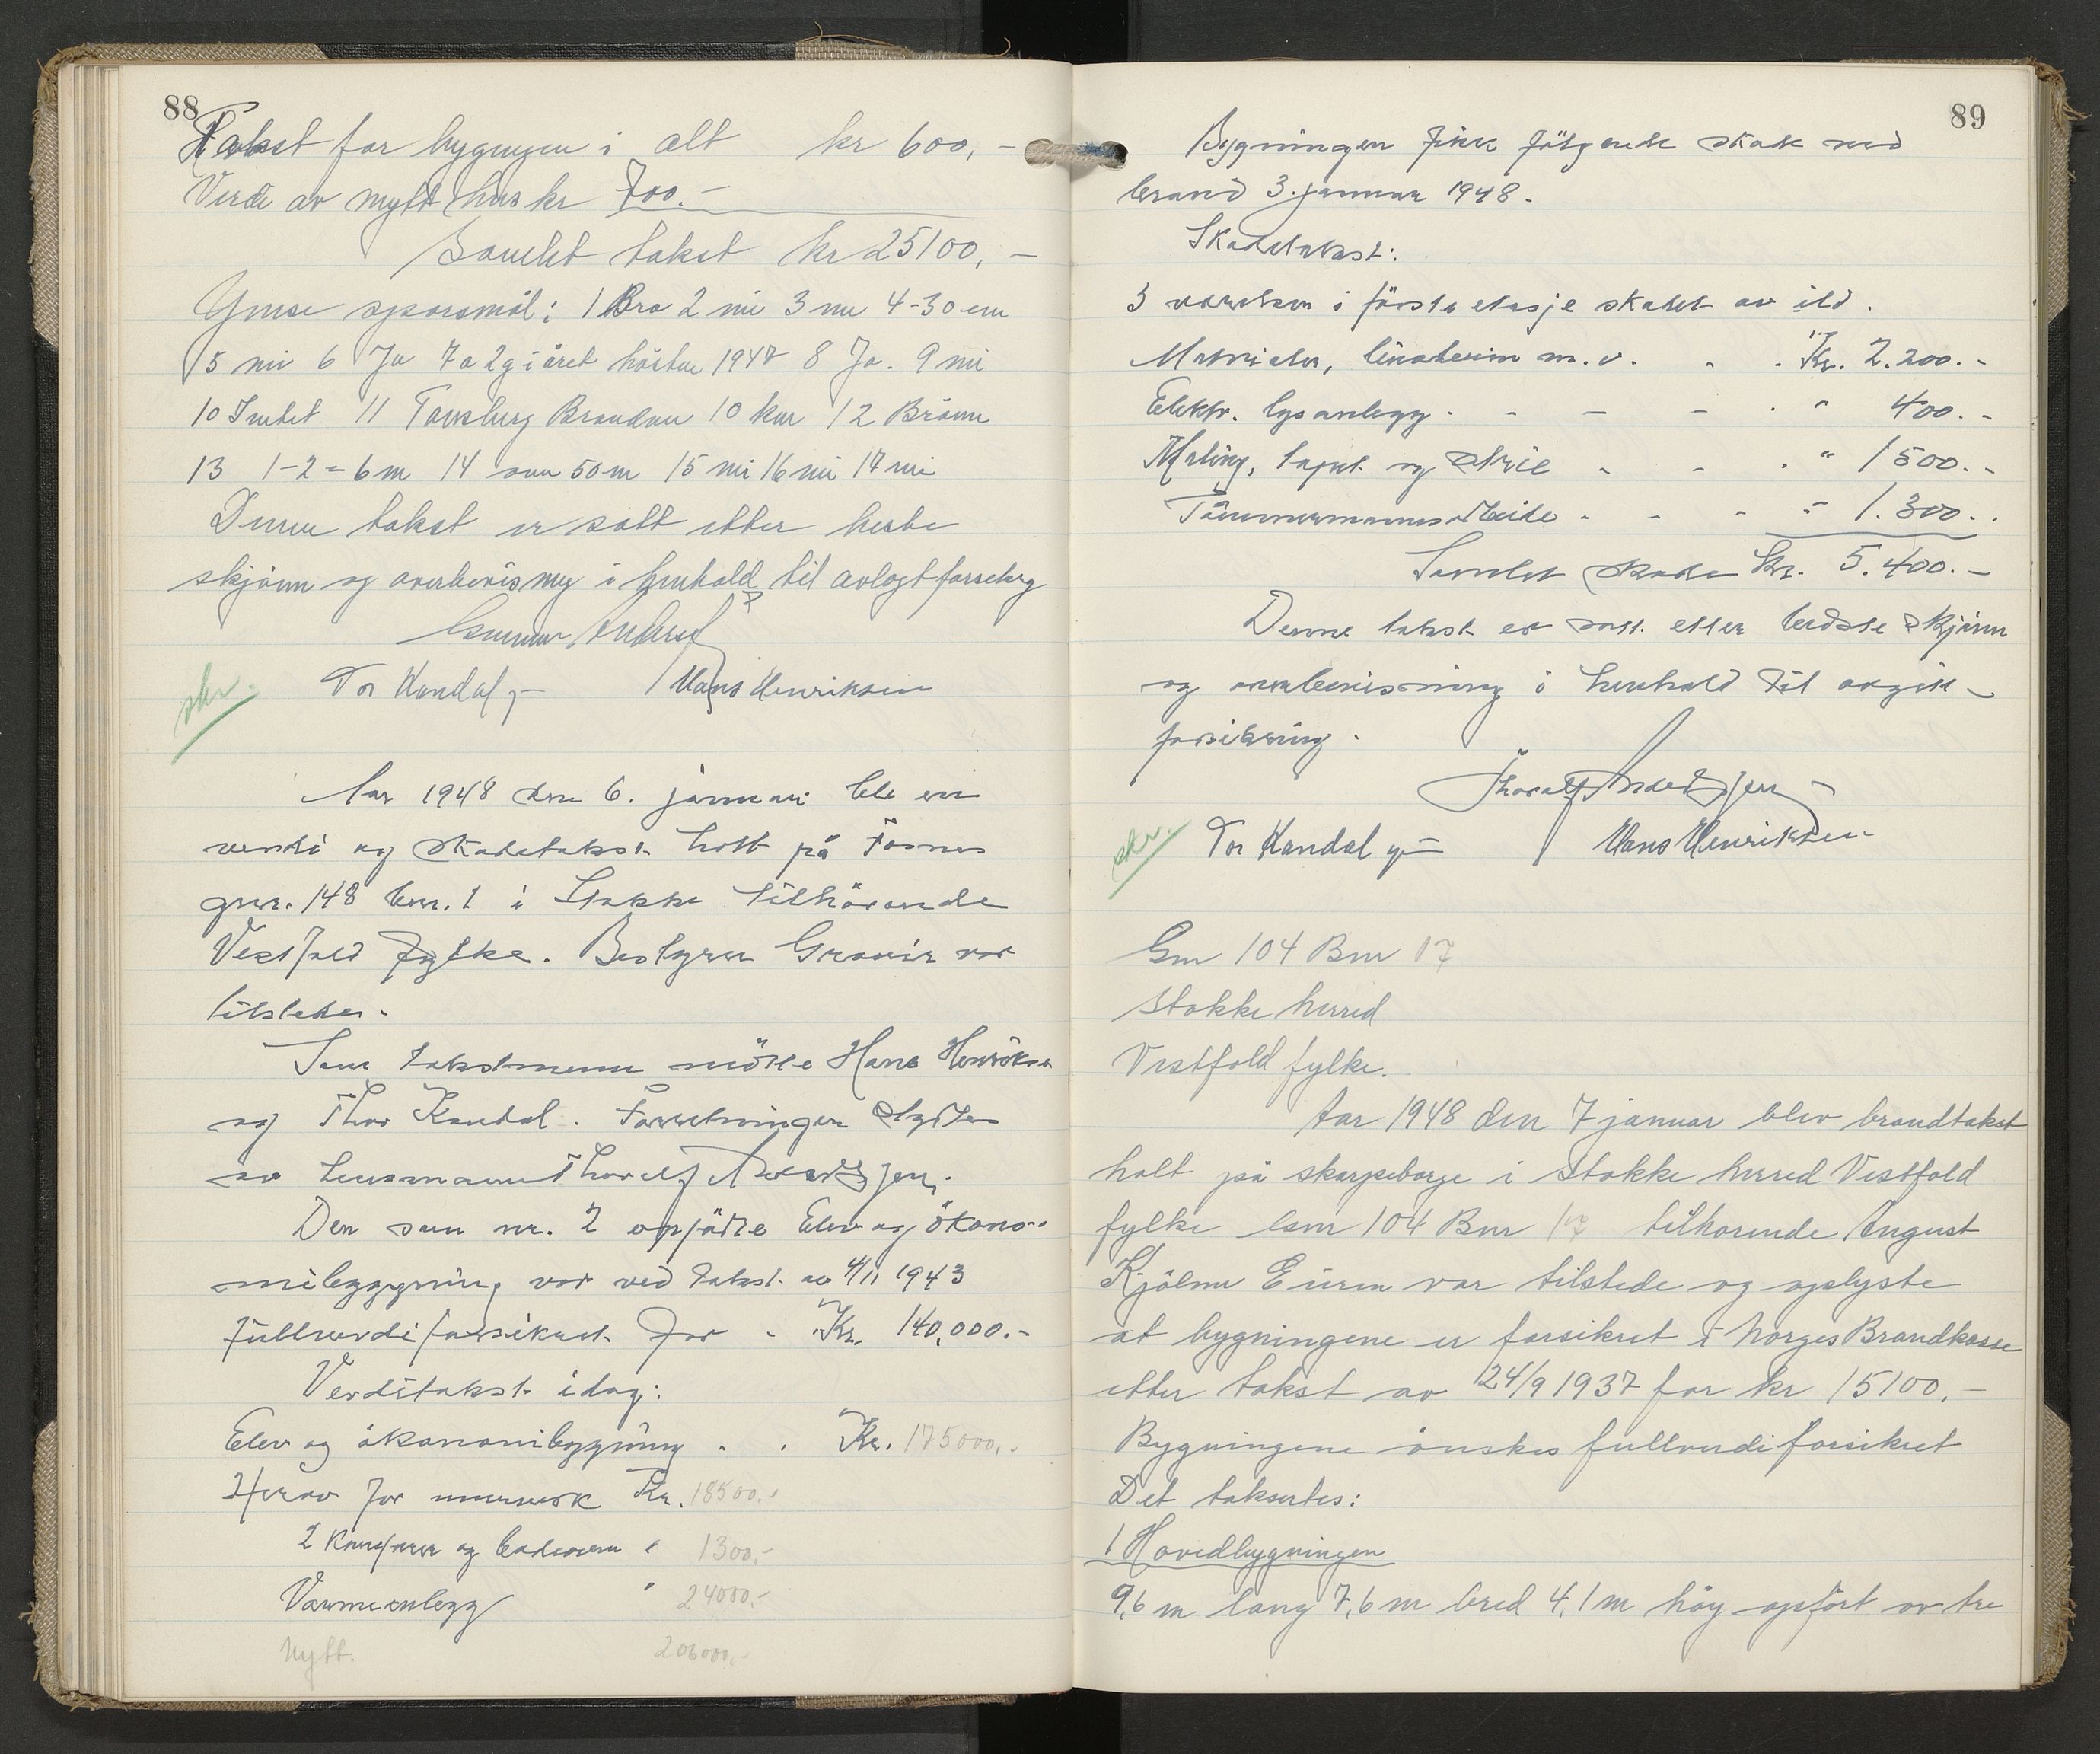 88
Takst for bygngen i alt kr 600,-
Verdi av nytt hus kr 700.-
Samlet takst kr 25100,-
Ymse spørsmål: 1 Bra 2 nei 3 nei 4-30 cm
5 nei 6 Ja 7a 2 g i året hösten 1947 8 Ja. 9 nei
10 Intet 11 Tønsberg Brandven 10 km 12 Brönn
13 1-2 = 6 m 14 50 m 15 nei 16 nei 17 nei
Denne takst er satt etter beste
skjönn og overbevisning i henhold til avlagt forsikring
Tor Kandal Hans Henriksen
skr.
Aar 1948 den 6. januar ble en
verdi og skadetakst holt på Fossnes
gnr. 148 bnr. 1 i Stokke tilhörende
Vestfold fylke. Bestyrer Gravir var
tilstede.
Som takstmenn mötte Hans Henriksen
og Thor Kandal. Forretningen styrtes
av lensmann Thoralf
Den som nr. 2 opförte Elev og ökono-
mibyggning var ved takst av 4/11 1943
fullverdiforsikret for - Kr. 140,000.-
Verditakst idag:
Elev og ökonomibyggning . . Kr. 175000,-
Herav for murverk Kr. 18500.-
2 og badeovn " 1300,-
Varmeanlegg " 24000,-
Nytt. 206000,-
89
Bygningen fikk fölgende skade ved
brand 3. januar 1948.
Skadetakst:
3 værelser i första etasje skadet av ild.
Materialer, linoleum m.v. - . Kr. 2.200.-
Elektr. lysanlegg . - - - . " 400.-
Maling, tapet og strie - - . " 1500.-
Tömmermannsarbeide - - - " 1.300.-
Samlet skade Kr. 5.400.-
Denne takst er satt etter bedste skjönn
og overbevisning i henhold til avgitt
forsikring.
skr. Tor Kandal Hans Henriksen
Gnr 104 Bnr 17
Stokke herred
Vestfold fylke.
Aar 1948 den 7 januar blev brandtakst
holt på skarpeborge i Stokke herred Vestfold
fylke Gnr 104 Bnr 17 tilhorende August
Kjölner Eieren var tilstede og oplyste
at bygningene er forsikret i Norges Brandkasse
etter takst av 24/9 1937 for kr 15100.-
Bygningene önskes fullverdiforsikret
Det taksertes:
1 Hovedbygningen
9,6 m lang 7,6 m bred 4,1 m höy opfört av tre